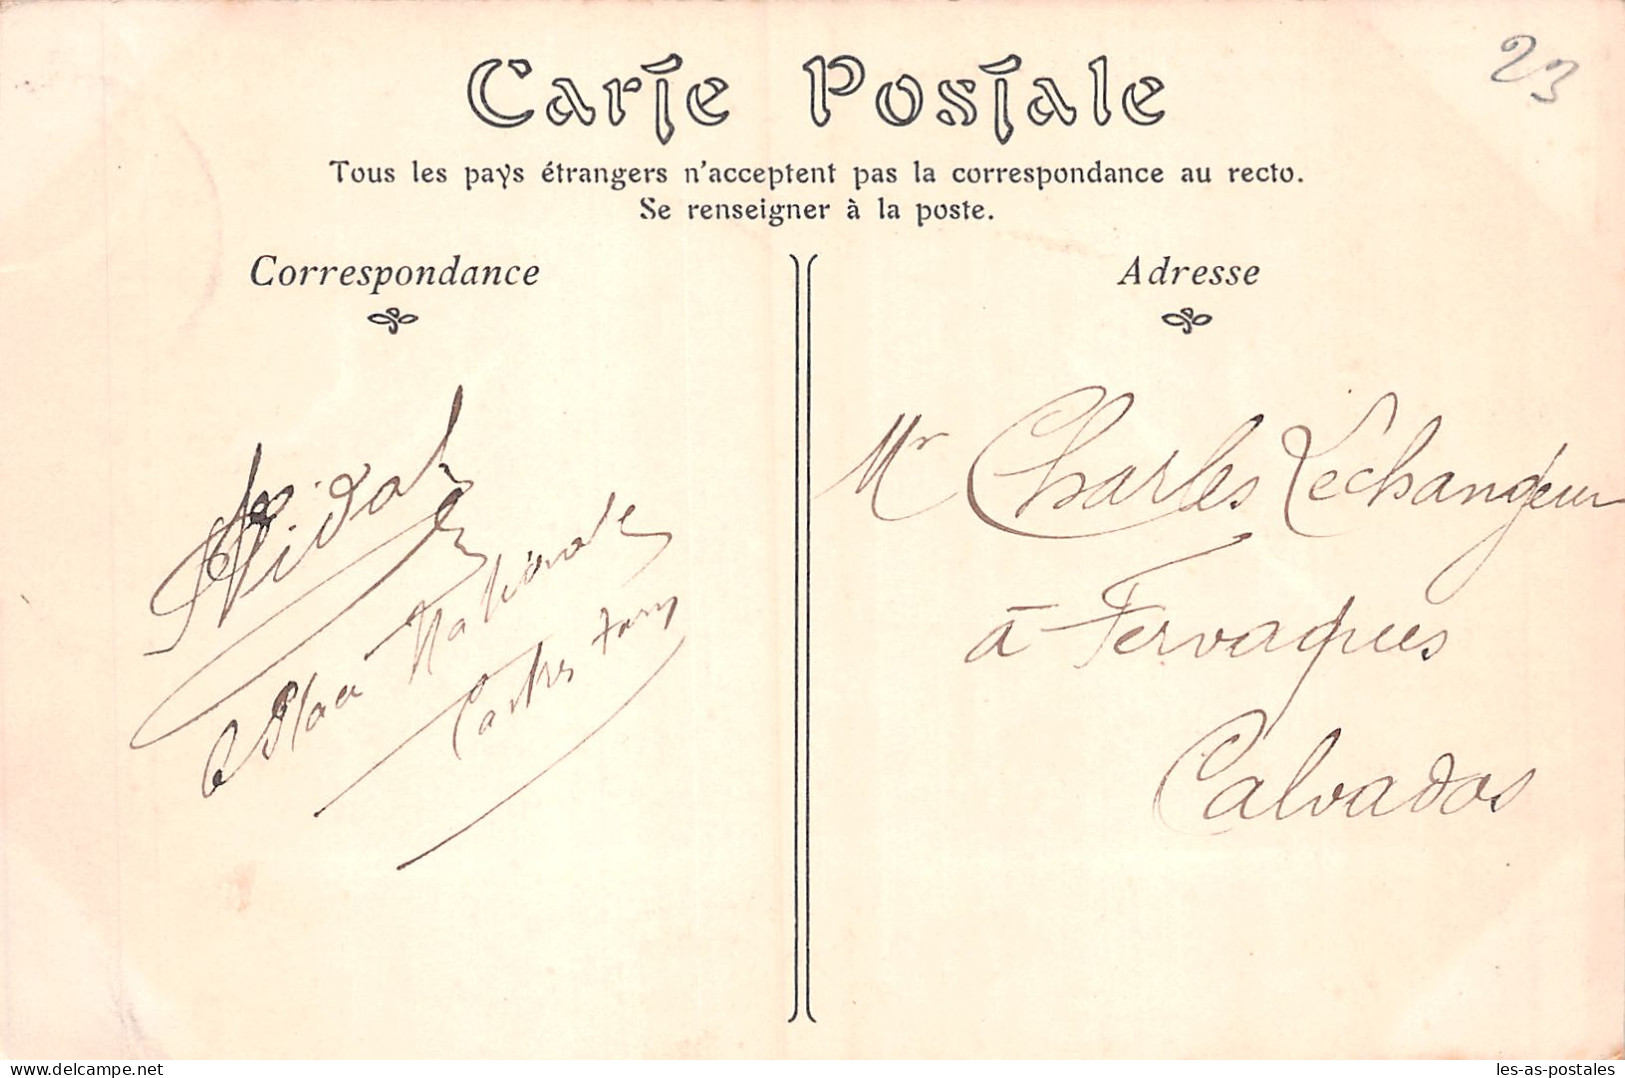 Carte Postale
23
Tous les pays étrangers n'acceptent pas la correspondance au recto.
Se renseigner à la poste.
Correspondance
Adresse
Vidal
6 Place Nationale
Castres Tarn
Mr Charles Lechangeur
à Fervaques
Calvados
delcampe.net
les-as-postales